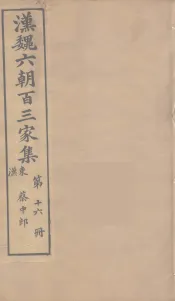 漢魏六朝百三家集
東漢
蔡中郎
第十六冊